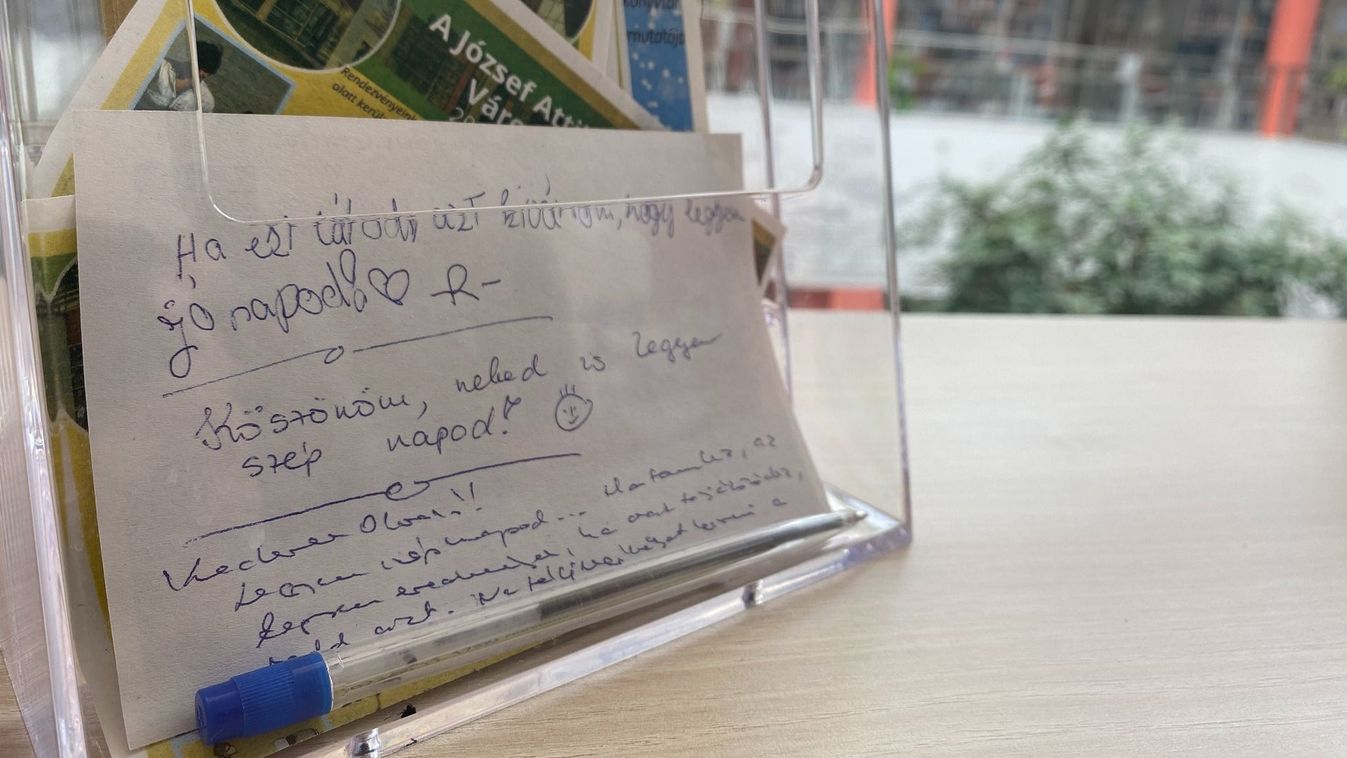 A József Atti
Váro
20
Rendezvényein
alatt kerül
könyvtár
mutatója
Ha ezt látod, azt kívánom, hogy legyen
jó napod! ♡ R-
Köszönöm, neked is legyen
szép napod!
Kedves Olvasó!!
Legyen szép napod... Ha tanulsz, az
legyen eredményes, ha
azt. Ne a